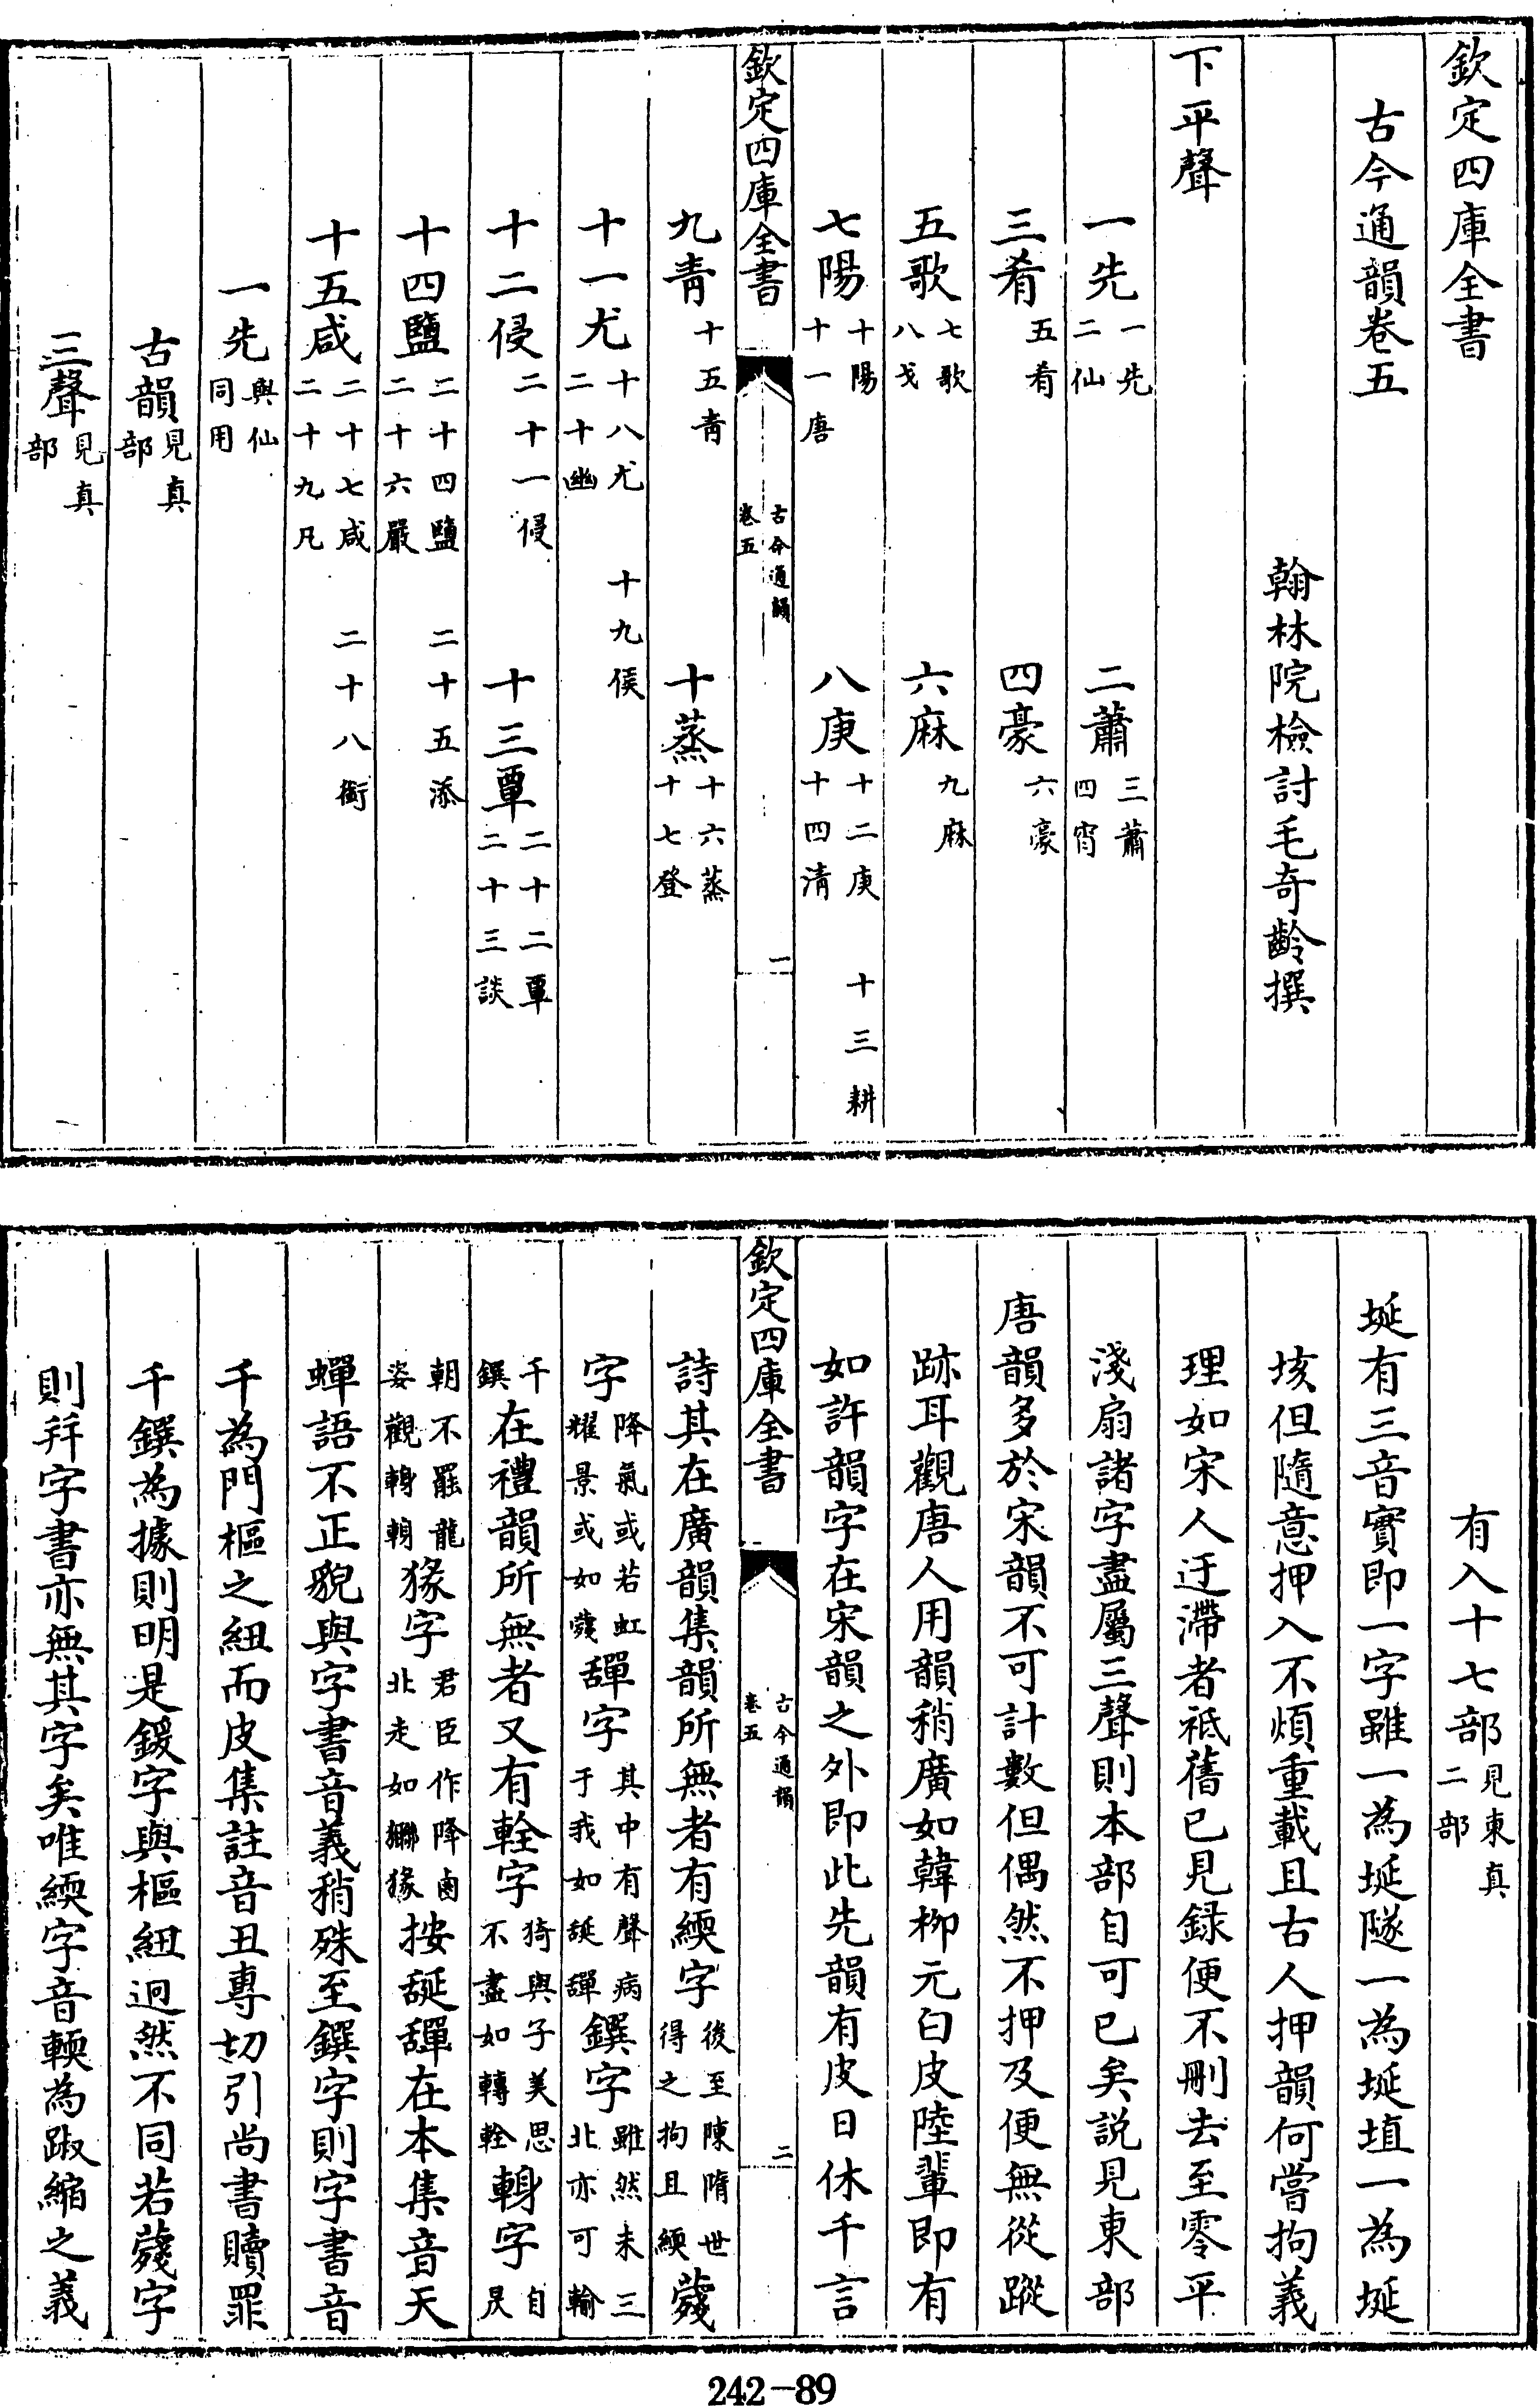 欽定四庫全書
古今通韻卷五
翰林院檢討毛奇齡撰
下平聲
一先 一先 二仙 二蕭 三蕭 四宵
三肴 五肴 四豪 六豪
五歌 七歌 八戈 六麻 九麻
七陽 十陽 十一唐 八庚 十二庚 十三耕 十四清
欽定四庫全書 古今通韻 卷五 一
九青 十五青 十蒸 十六蒸 十七登
十一尤 十八尤 十九侯 二十幽
十二侵 二十一侵 十三覃 二十二覃 二十三談
十四鹽 二十四鹽 二十五添 二十六嚴
十五咸 二十七咸 二十八銜 二十九凡
一先 與仙同用
古韻 見真部
三聲 見真部
有入十七部 見東真二部
埏有三音實即一字雖一為埏隧一為埏埴一為埏
垓但隨意押入不煩重載且古人押韻何嘗拘義
理如宋人迂滯者祗舊已見録便不刪去至零平
淺扇諸字盡屬三聲則本部自可已矣説見東部
唐韻多於宋韻不可計數但偶然不押及便無從蹤
跡耳觀唐人用韻稍廣如韓柳元白皮陸輩即有
如許韻字在宋韻之外即此先韻有皮日休千言
欽定四庫全書 古今通韻 卷五 二
詩其在廣韻集韻所無者有緛字 後至陳隋世得之拘且緛 薎
字 降氣或若虹耀景或如薎 磾字 其中有聲病于我如䛃磾 鐉字 雖然未三北亦可輸
千鐉 在禮韻所無者又有輇字 猗與子美思不盡如轉輇 䡓字 自昃
朝不罷龍姿觀䡓䡓 猭字 君臣作降鹵北走如㺦猭 按䛃磾在本集音天
蟬語不正貌與字書音義稍殊至鐉字則字書音
千為門樞之紐而皮集註音丑專切引尚書贖罪
千鐉為據則明是鍰字與樞紐迥然不同若薎字
則幷字書亦無其字矣唯緛字音輭為踧縮之義
242-89